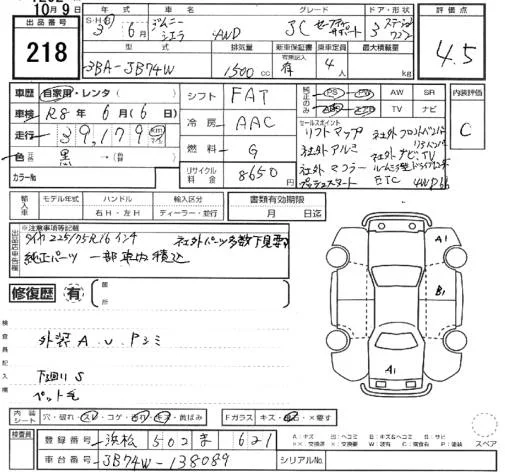 10月9日
出品番号
218
年式 車名 グレード ドア・形状 評価点
S・H・R 3年 6月 ジムニーシエラ 4WD JC セーフティサポート 3 ステーションワゴン 4.5
型式 排気量 新車保証書 乗車定員 最大積載量
3BA-JB74W 1500cc 有 4人 kg
車歴 自家用・レンタ
車検 R8年 6月(6日)
走行 39,179 km
色 元色 黒 → (替)
カラーNo.
シフト FAT
冷房 AAC
燃料 G
リサイクル料金 8650
純正のみ PS PW AW SR
TV ナビ
セールスポイント
リフトアップ 社外フロントバンパー
リヤバンパー
社外アルミ 社外ナビ、TV
社外マフラー
プッシュスタート ETC
内装評価
C
輸入車 モデル年式 ハンドル 輸入区分
年 右H・左H ディーラー・並行
書類有効期限
月 日迄
出品店申告欄
※注意事項等記載
タイヤ225/75R16インチ 社外パーツ多数下見要
純正パーツ 一部車内積込
修復歴 有 部所
検査員記入欄
外装 A.U.Pシミ
下廻りS
ペット毛
A1
B1
A1
内装シート 穴・破れ・スレ・コゲ・汚れ・キズ・黄ばみ
Fガラス キズ・飛石・×要す
検査員
登録番号 浜松 502 す 621
車台番号 JB74W-138089 シリアルNo.
A:キズ U:ヘコミ B:キズ&ヘコミ S:サビ
スペア